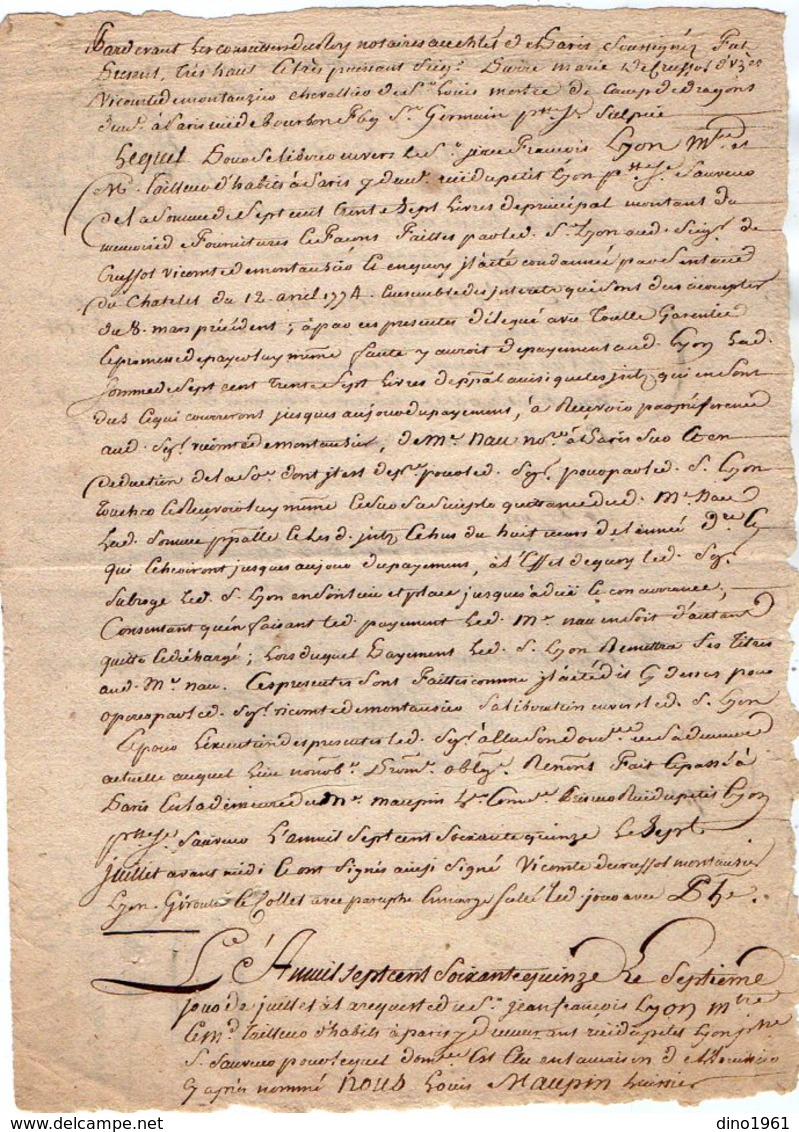 Pardevant les conseillers du Roy notaires au chlet de Paris soussignés Fut
Présent, très haut et très puissant Seigr. Pierre marie De Crussol d'Uzès
Vicomte de montausier chevallier de St. Louis mestre de Camp de dragons
demt. à Paris rue de Bourbon Fbg St. Germain psse St. Sulpice
Lequel Pour se libérer envers le Sr. jean François Lyon Mtre et
Md. Tailleur d'habits à Paris y demt. rue du petit Lyon psse St. Sauveur
de la Somme de Sept cent trente Sept livres de principal montant du
memoire de Fournitures et Façons Faittes par led. Sr. Lyon aud. Seigr. de
Crussol vicomte de montausier et en quoy il a été condamné par Sentence
du Chatelet du 12. avril 1774. Ensemble des interets qui sont dus à compter
du 8. mars précédent; a par ces presentes délégué avec Toutte Garentie
et promesse de payer luy même faute y auroit de payement aud. Lyon lad.
Somme de Sept cent trente Sept livres de ppal ainsi que les jnts. qui en sont
dus et qui courreront jusques au jour du payement, à Recevoir par préférence
aud. Sgr. vicomte de montausier, de Me. Nau nore. à Paris sur et en
deduction de la Se. dont il est dépre. pour led. Sgr. pour par led. S. Lyon
Toucher et Recevoir luy même et sur sa simple quittance dud. Me. Nau
lad. Somme ppalle et lesd. jnts. échus du huit mars de l'année dre. et
qui echeoiront jusques au jour du payement, à l'Effet de quoy led. Sgr.
Subroge led. S. Lyon en son lieu et place jusques à due et concurrance,
Consentant qu'en faisant led. payement led. Me. Nau en soit d'autant
quitte et déchargé; Lors duquel Payement led. S. Lyon Remettra Ses Titres
aud. Me. Nau. Ces presentes sont Faittes comme il a été dit cy dessus pour
operer par led. Sgr. vicomte de montausier sa libération envers led. S. Lyon
Et pour l'exécution des presentes led. Sgr. a élu son domle. en sa demeure
actuelle auquel lieu nonobt. Promt. oblgt. Renonçt. Fait et passé à
Paris En la demeure du Me. Maupin
psse St. Sauveur L'an mil Sept cent soixante quinze le Sept
juillet avant midi et ont signés ainsi signé Vicomte de crussol montausier
Lyon. Giroult et Collet avec paraphe En marge scellé led. jour avec Phe.
L'An mil sept cent soixante quinze le Septieme
jour de juillet à la requeste du Sr. jean françois Lyon mtre
et Md. Tailleur d'habits à paris y demeurant rue du petit Lyon psse
S. Sauveur pour lequel domle. Est Elu en la maison de l'huissier
cy après nommé Nous Louis Maupin huissier
dino1961